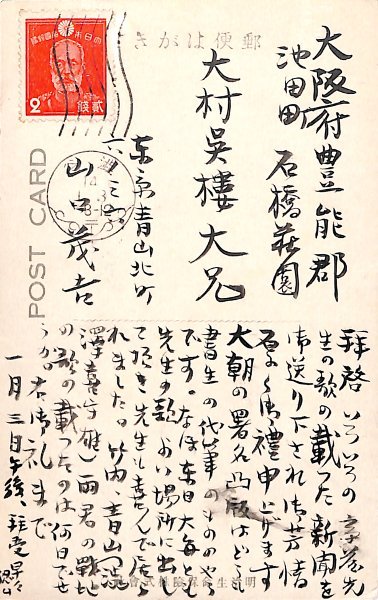 きがは便郵
大日本帝國郵便
2 錢 貳
POST CARD
大阪府豊能郡
池田町 石橋荘園
大村呉樓大兄
東京青山北町
六ノ
山口茂吉
拝啓 いろいろの 先
生の歌の載つた新聞を
御送り下され御芳情
厚く御禮申上げます
大朝の署名凸版はどうし
書生の代筆のものやう
です。なほ東日大毎とも
先生の歌よい場所に出し
て頂き先生も喜んで居ら
れました。竹内、青山 (
澤 雄)両君の戦地
の歌の載つたのは何日でせ
うか。右御礼まで
一月三日午後、拝受早々
明治生命保険株式會社